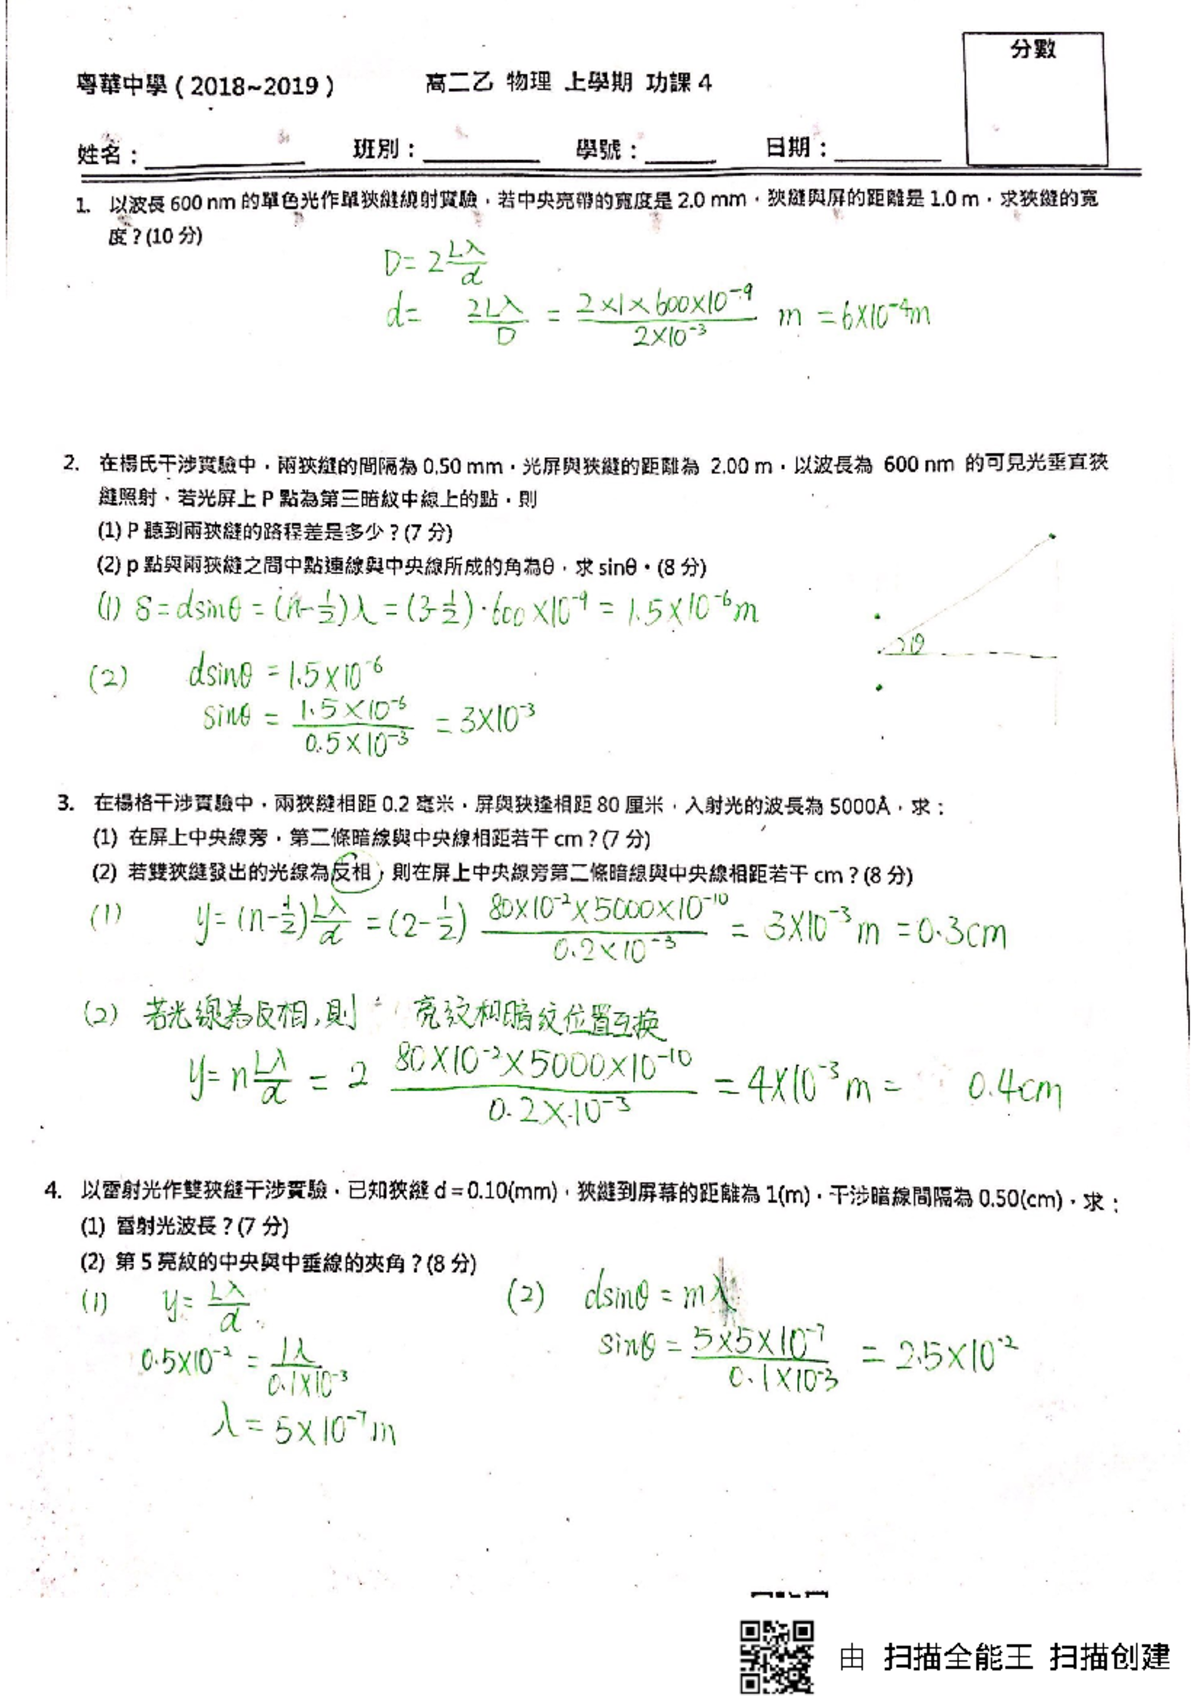 分數
粵華中學 ( 2018~2019 ) 高二乙 物理 上學期 功課 4
姓名： 班別： 學號： 日期：
1. 以波長 600 nm 的單色光作單狹縫繞射實驗，若中央亮帶的寬度是 2.0 mm，狹縫與屏的距離是 1.0 m，求狹縫的寬
度？(10 分)
D = 2 Lλ/d
d = 2Lλ/D = 2×1×600×10⁻⁹/2×10⁻³ m = 6×10⁻⁴m
2. 在楊氏干涉實驗中，兩狹縫的間隔為 0.50 mm，光屏與狹縫的距離為 2.00 m，以波長為 600 nm 的可見光垂直狹
縫照射，若光屏上 P 點為第三暗紋中線上的點，則
(1) P 聽到兩狹縫的路程差是多少？(7 分)
(2) p 點與兩狹縫之間中點連線與中央線所成的角為θ，求 sinθ。(8 分)
(1) δ = dsinθ = (n-½)λ = (3-½)·600×10⁻⁹ = 1.5×10⁻⁶m
θ
(2) dsinθ = 1.5×10⁻⁶
sinθ = 1.5×10⁻⁶/0.5×10⁻³ = 3×10⁻³
3. 在楊格干涉實驗中，兩狹縫相距 0.2 毫米，屏與狹逢相距 80 厘米，入射光的波長為 5000Å，求：
(1) 在屏上中央線旁，第二條暗線與中央線相距若干 cm？(7 分)
(2) 若雙狹縫發出的光線為反相，則在屏上中央線旁第二條暗線與中央線相距若干 cm？(8 分)
(1) y = (n-½)Lλ/d = (2-½) 80×10⁻²×5000×10⁻¹⁰/0.2×10⁻³ = 3×10⁻³m = 0.3cm
(2) 若光線為反相,則 亮紋和暗紋位置互換
y = n Lλ/d = 2 80×10⁻²×5000×10⁻¹⁰/0.2×10⁻³ = 4×10⁻³m = 0.4cm
4. 以雷射光作雙狹縫干涉實驗，已知狹縫 d = 0.10(mm)，狹縫到屏幕的距離為 1(m)，干涉暗線間隔為 0.50(cm)，求：
(1) 雷射光波長？(7 分)
(2) 第 5 亮紋的中央與中垂線的夾角？(8 分)
(1) y = Lλ/d
0.5×10⁻² = 1λ/0.1×10⁻³
λ = 5×10⁻⁷m
(2) dsinθ = mλ
sinθ = 5×5×10⁻⁷/0.1×10⁻³ = 2.5×10⁻²
由 扫描全能王 扫描创建